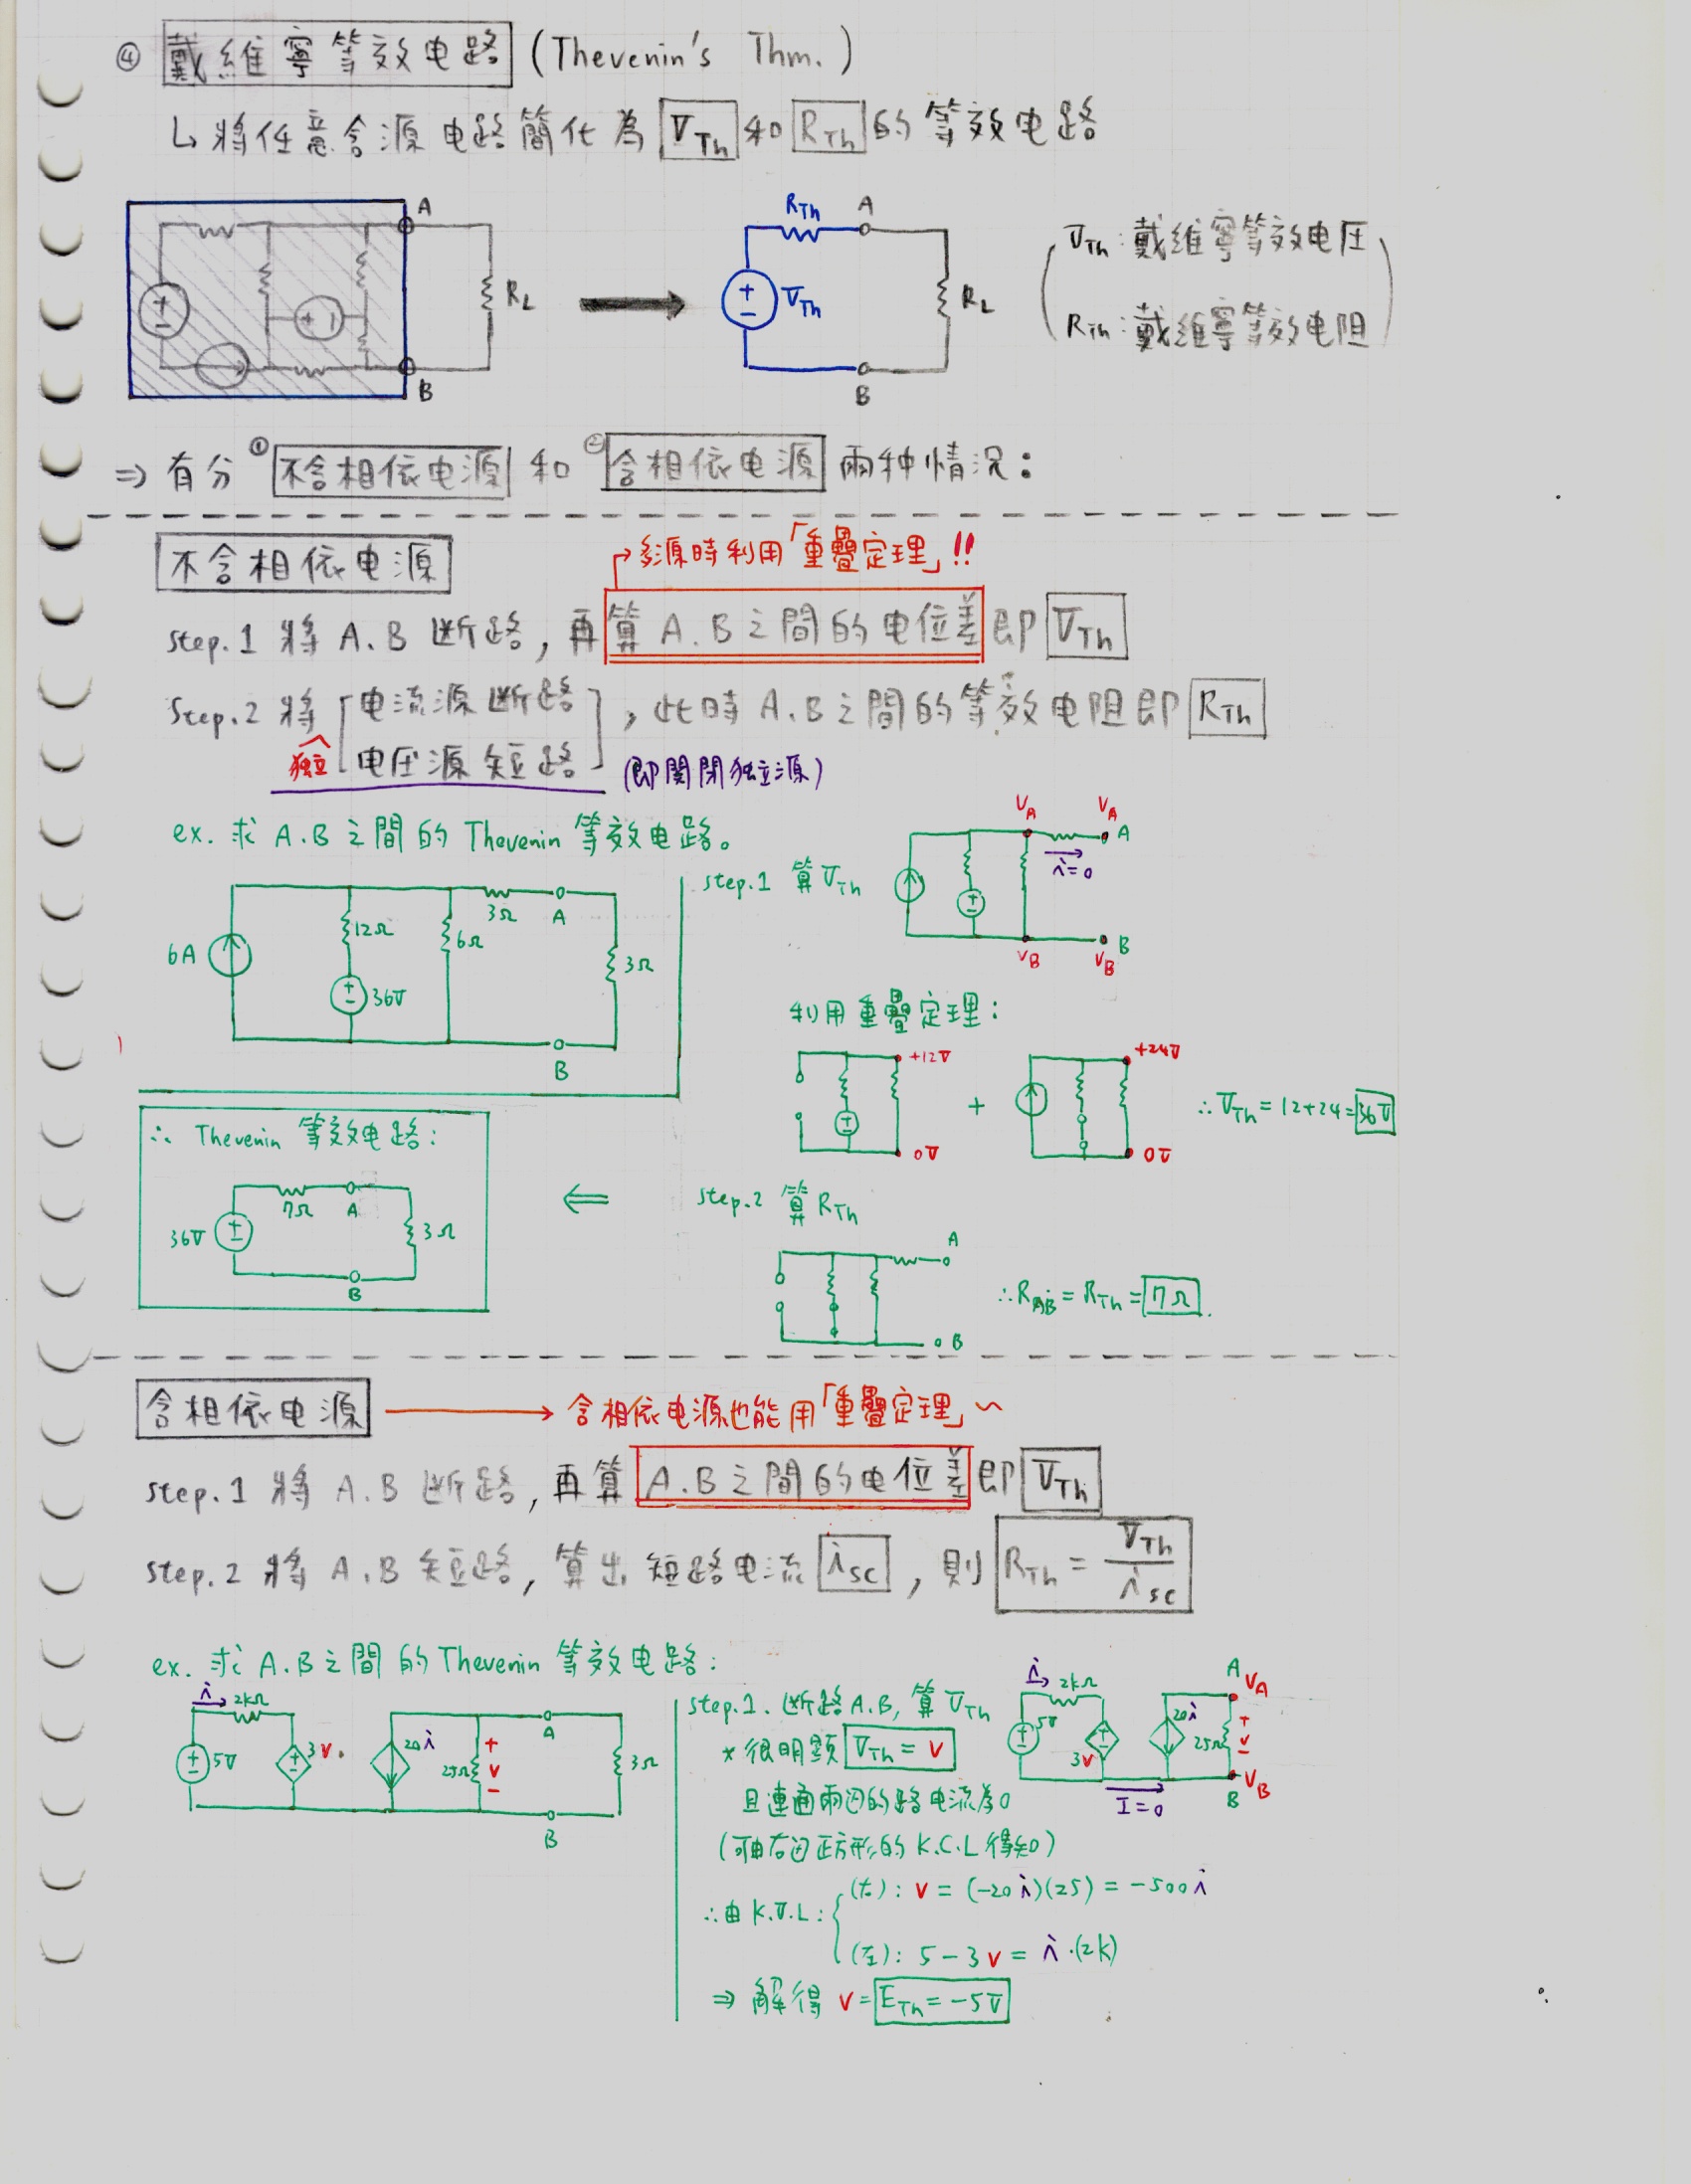 ④ 戴維寧等效电路 (Thevenin's Thm.)
↳ 將任意含源电路簡化為 VTh 和 RTh 的等效电路
A
B
RL
RTh
A
VTh
RL
B
VTh:戴維寧等效电压
RTh:戴維寧等效电阻
⇒ 有分 ①不含相依电源 和 ②含相依电源 兩种情况:
不含相依电源
→多源時利用「重疊定理」!!
step.1 將 A.B 断路, 再算 A.B 之間的电位差即 VTh
Step.2 將 [电流源断路 电压源短路], 此時 A.B 之間的等效电阻即 RTh
独立
(即關閉独立源)
ex. 求 A.B 之間的 Thevenin 等效电路。
6A
12Ω
36V
6Ω
3Ω
A
3Ω
B
step.1 算 VTh
VA VA A
i=0
VB VB B
利用重疊定理:
+12V
0V
+
+24V
0V
∴ VTh = 12+24 = 36V
∴ Thevenin 等效电路:
36V
7Ω
A
3Ω
B
⇐
step.2 算 RTh
A
B
∴RAB = RTh = 7Ω.
含相依电源 → 含相依电源也能用「重疊定理」~
step.1 將 A.B 断路, 再算 A.B 之間的电位差即 VTh
step.2 將 A.B 短路, 算出短路电流 isc, 則 RTh = VTh / isc
ex. 求 A.B 之間的 Thevenin 等效电路:
i→ 2kΩ
5V
3v
20i
25Ω
+ v -
A
3Ω
B
step.1. 断路 A.B, 算 VTh
* 很明顯 VTh = v
且連通兩边的路电流為0
(可由右边正方形的 K.C.L 得知)
i→ 2kΩ
5V
3v
20i
25Ω
+ v -
A VA
B VB
I=0
∴由 K.V.L:
(右): v = (-20i)(25) = -500i
(左): 5 - 3v = i·(2k)
⇒ 解得 v = ETh = -5V